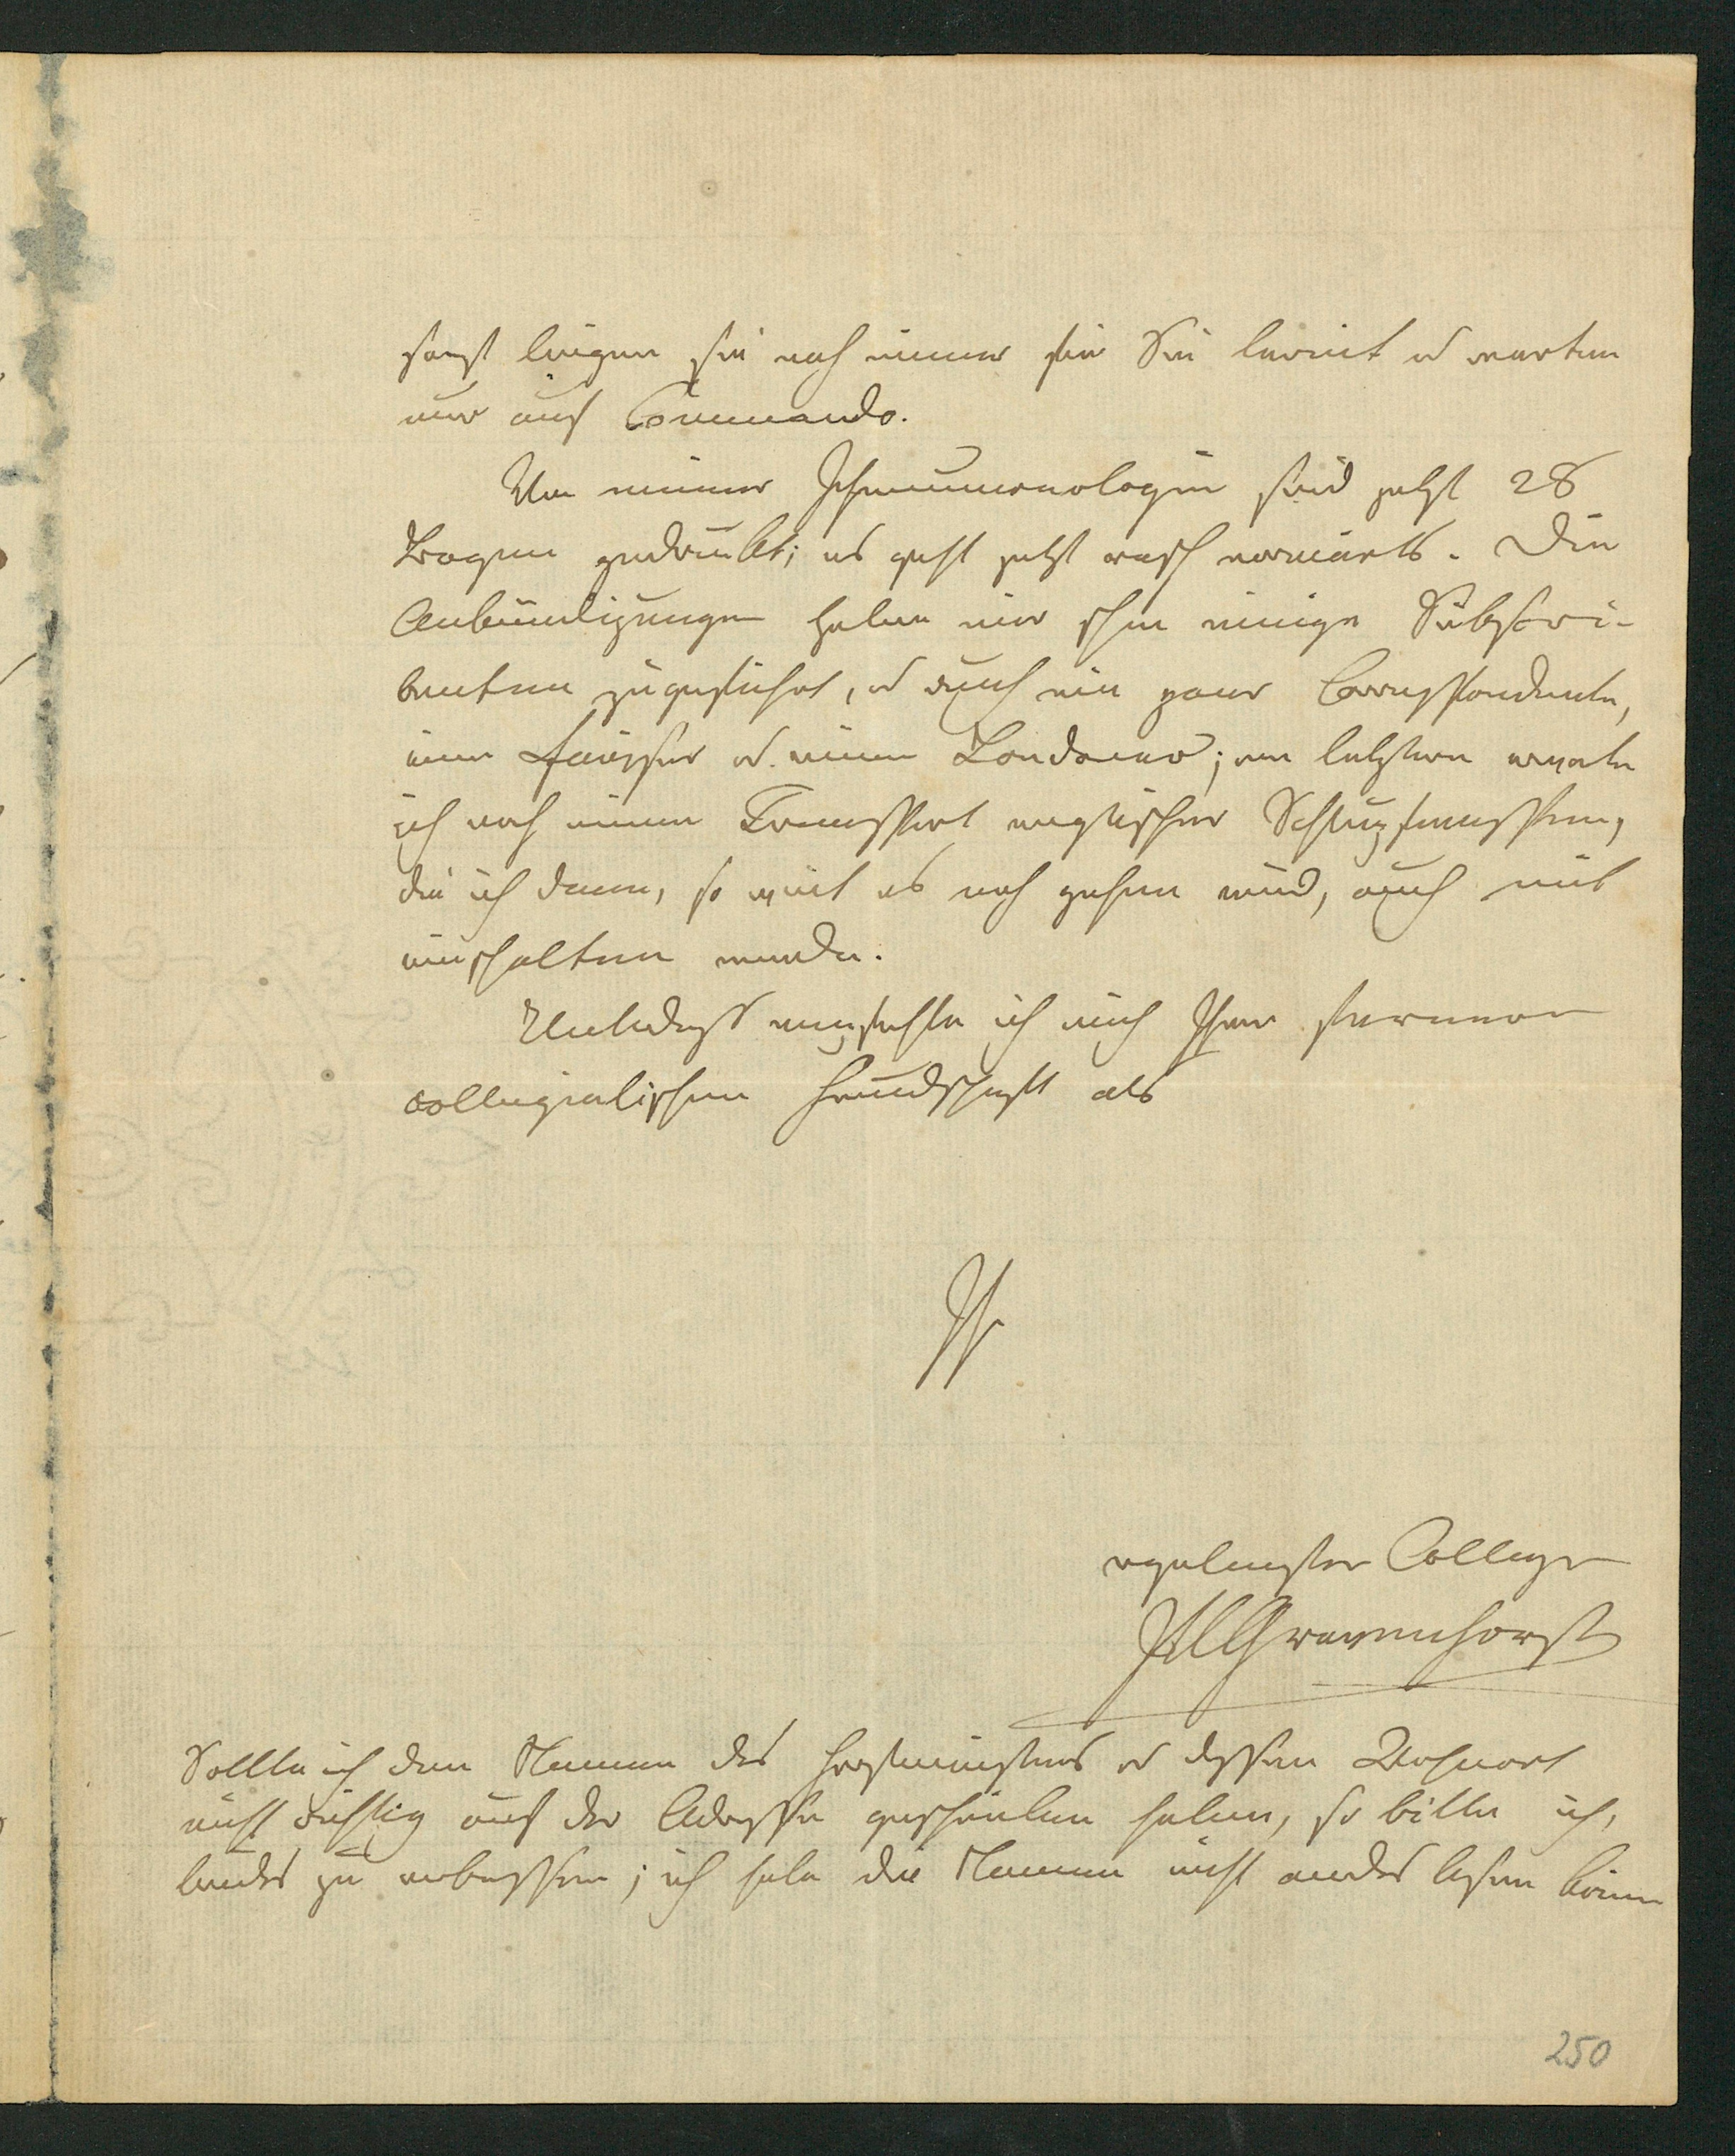 sonst liegen sie noch immer für Sie bereit u warten
nur auf Commando.
Von meiner Ichneumonologie sind jetzt 28
Bogen gedruckt; es geht jetzt rasch vorwärts. Die
Ankündigungen haben mir schon einige Subscri-
benten zugeführt, u auch ein paar Correspondenten,
einen Pariser u. einen Londoner; vom letztern erwarte
ich noch einen Transport englischer Schlupfwespen,
die ich dann, so weit es noch gehen wird, auch mit
einschalten werde.
Unterdeß empfehle ich mich Ihrer fernern
collegialischen Freundschaft als
Ihr
ergebenster College
JLCGravenhorst
Sollte ich den Namen des Forstmeisters u dessen Wohnort
nicht richtig auf der Adresse geschrieben haben, so bitte ich,
beides zu verbessern; ich habe die Namen nicht anders lesen können
250